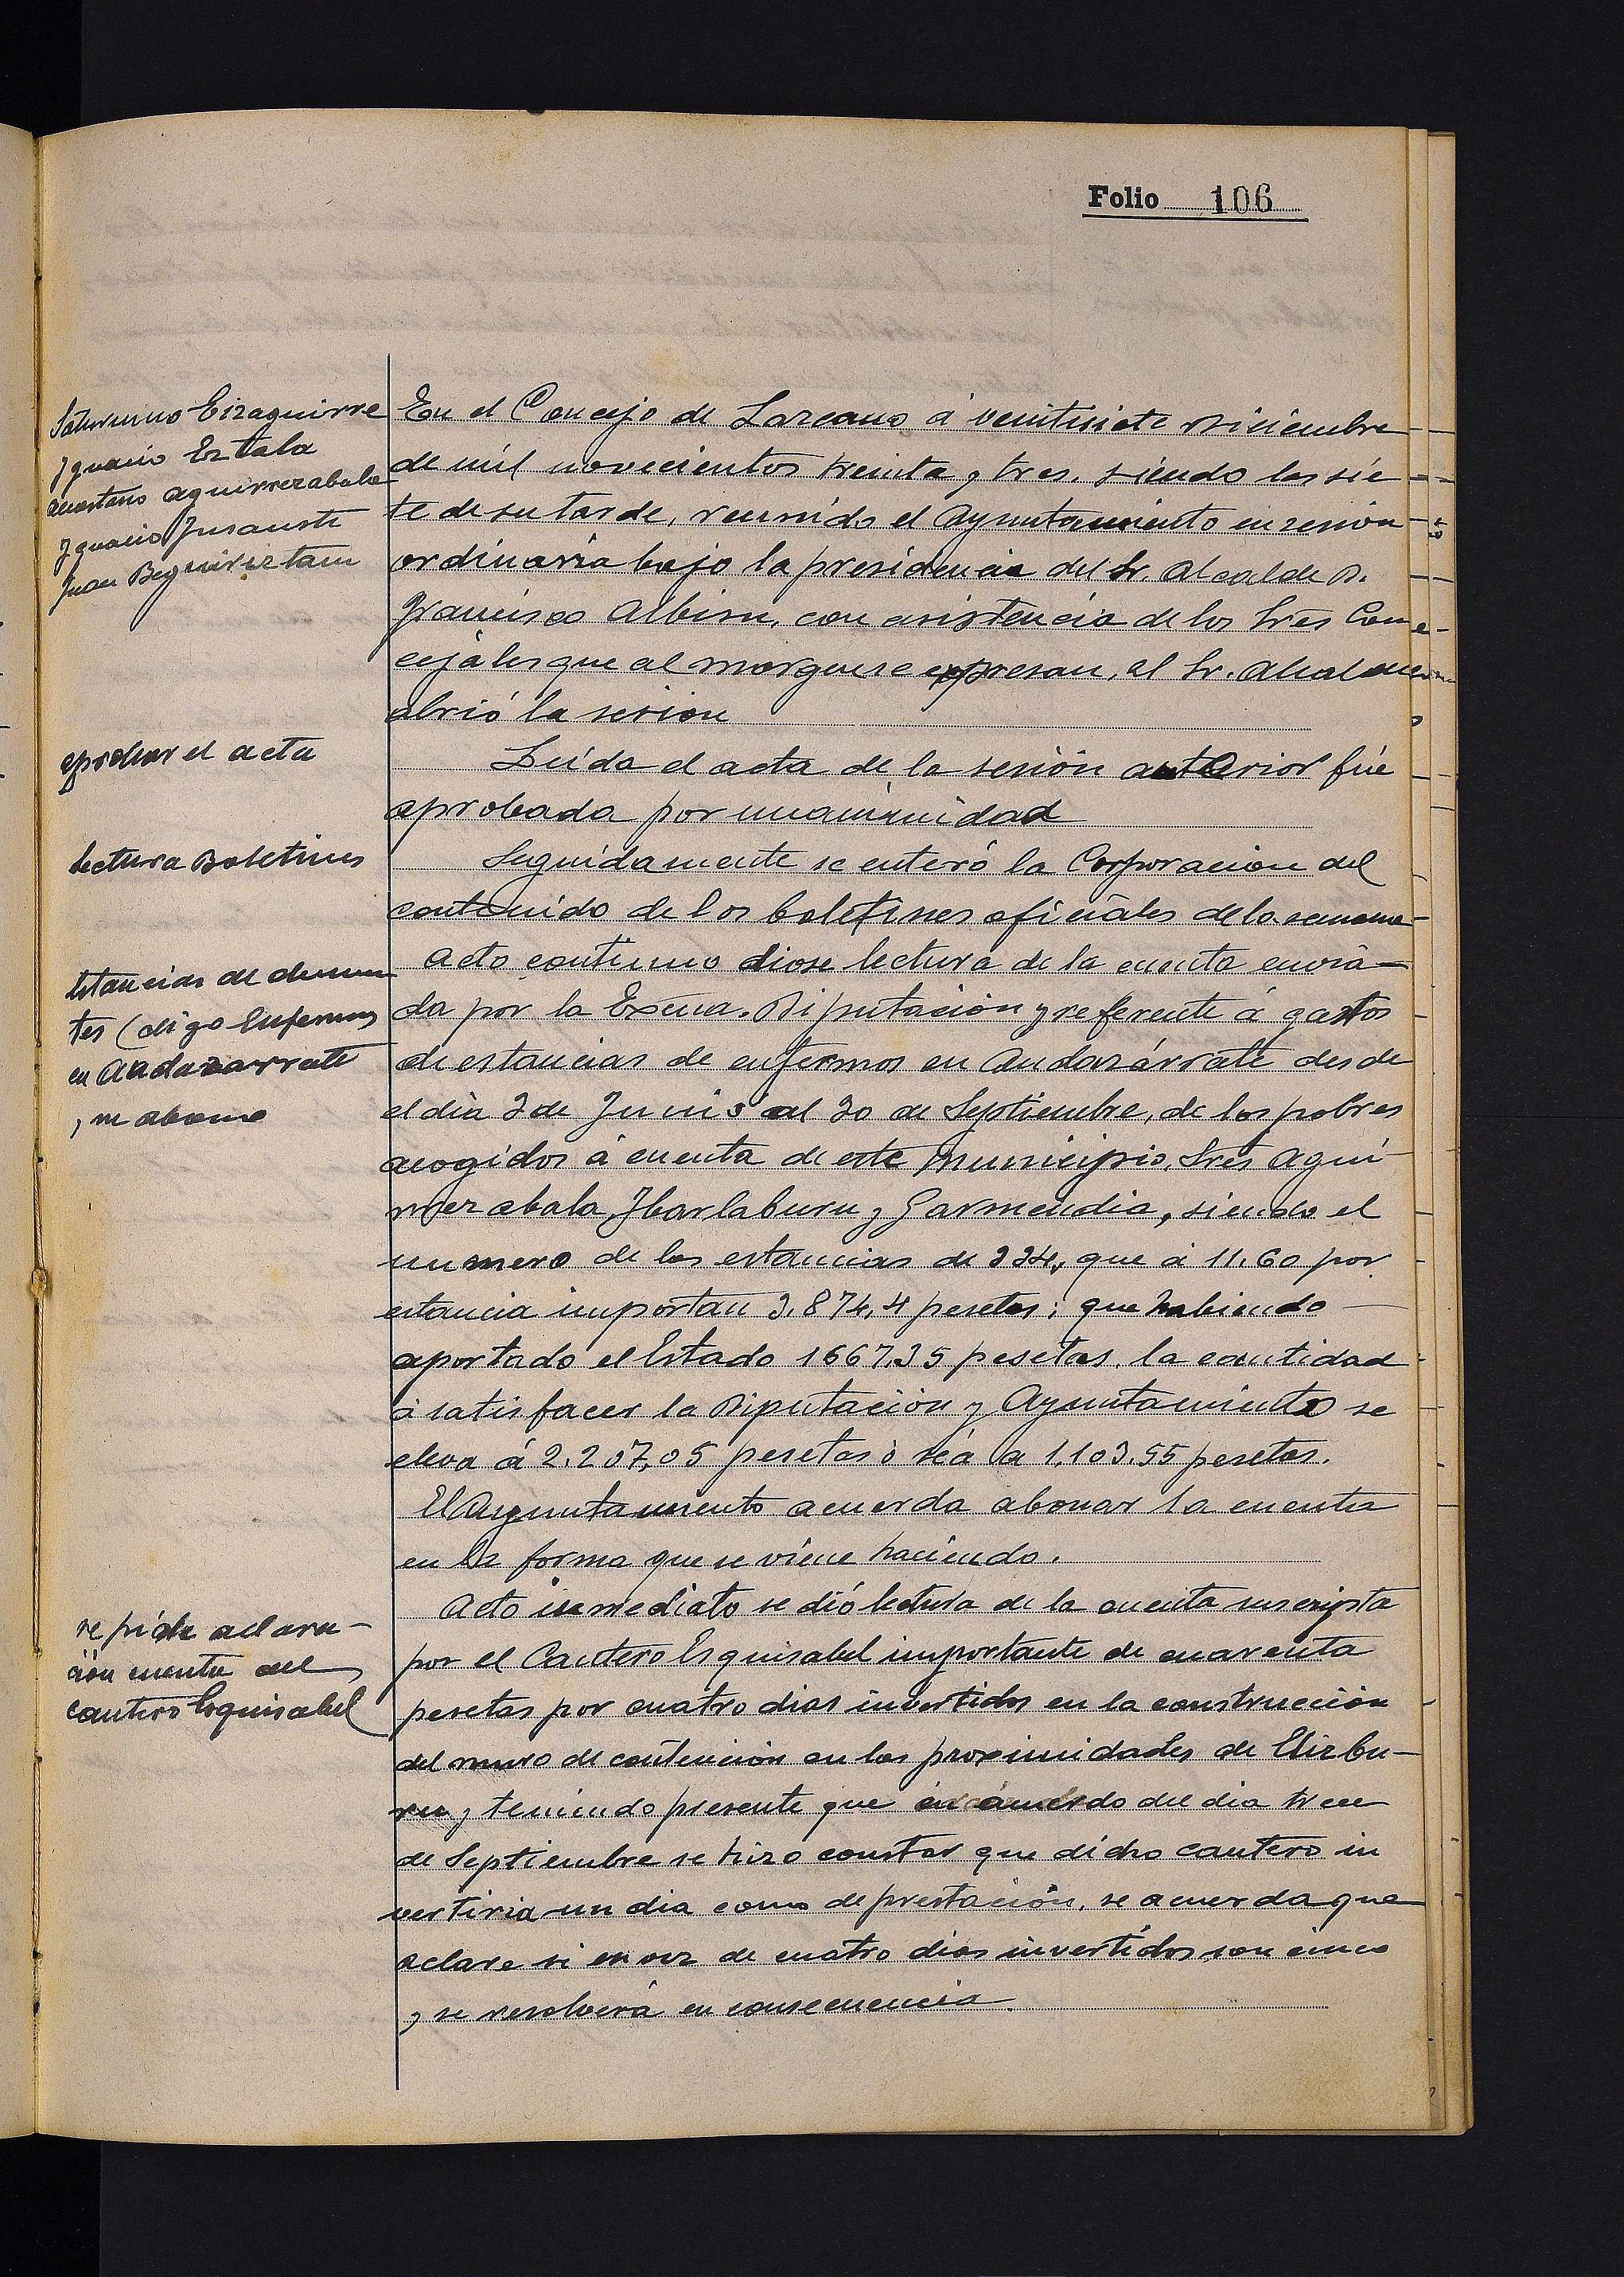 Folio 106
Saturnino Eizaguirre
Ignacio Eztala
Anastasio Aguirrezabala
Ignacio Insausti
Juan Beguiristain
En el Concejo de Lazcano á veintisiete Diciembre
de mil novecientos treinta y tres, siendo las sie
te de su tarde, reunido el Ayuntamiento en sesion
ordinaria bajo la presidencia del Sr. Alcalde D.
Francisco Albisu, con asistencia de los Sres Con
cejales que al margense expresan, el Sr. Alcalde
abrió la sesion
aprobar el acta
Leida el acta de la sesión anterior fué
aprobada por unanimidad
lectura Boletines
Seguidamente se enteró la Corporacion del
contenido de los boletines oficiales de la semana
estancias de demen
tes (digo enfermos
en Andazarrate
, su abono
Acto continuo diose lectura de la cuenta envia-
da por la Excma. Diputación y referente á gastos
de estancias de enfermos en Andazárrate desde
el dia 2 de Junio al 30 de Septiembre, de los pobres
acogidos á cuenta de este municipio, Sres Agui
rrezabala Ibarlaburu y Garmendia, siendo el
numero de las estancias de 334, que á 11.60 por
estancia importan 3.874,4 pesetas; que habiendo
aportado el Estado 1667.35 pesetas, la cantidad
á satisfacer la Diputación y Ayuntamiento se
eleva á 2.207,05 pesetas ó séa a 1.103.55 pesetas.
El Ayuntamiento acuerda abonar la cuenta
en la forma que se viene haciendo.
se pide aclara-
ción cuenta del
cantero Esquisabel
Acto inmediato se dió lectura de la cuenta suscripta
por el Cantero Esquisabel importante de cuarenta
pesetas por cuatro dias invertidos en la construcción
del muro de contención en las proximidades de Elizbu-
ru y teniendo presente que en acuerdo del dia trece
de Septiembre se hizo constar que dicho cantero in
vertiria un dia como de prestación, se acuerda que
aclare si en vez de cuatro dias invertidos son cinco
y se resolverá en consecuencia.